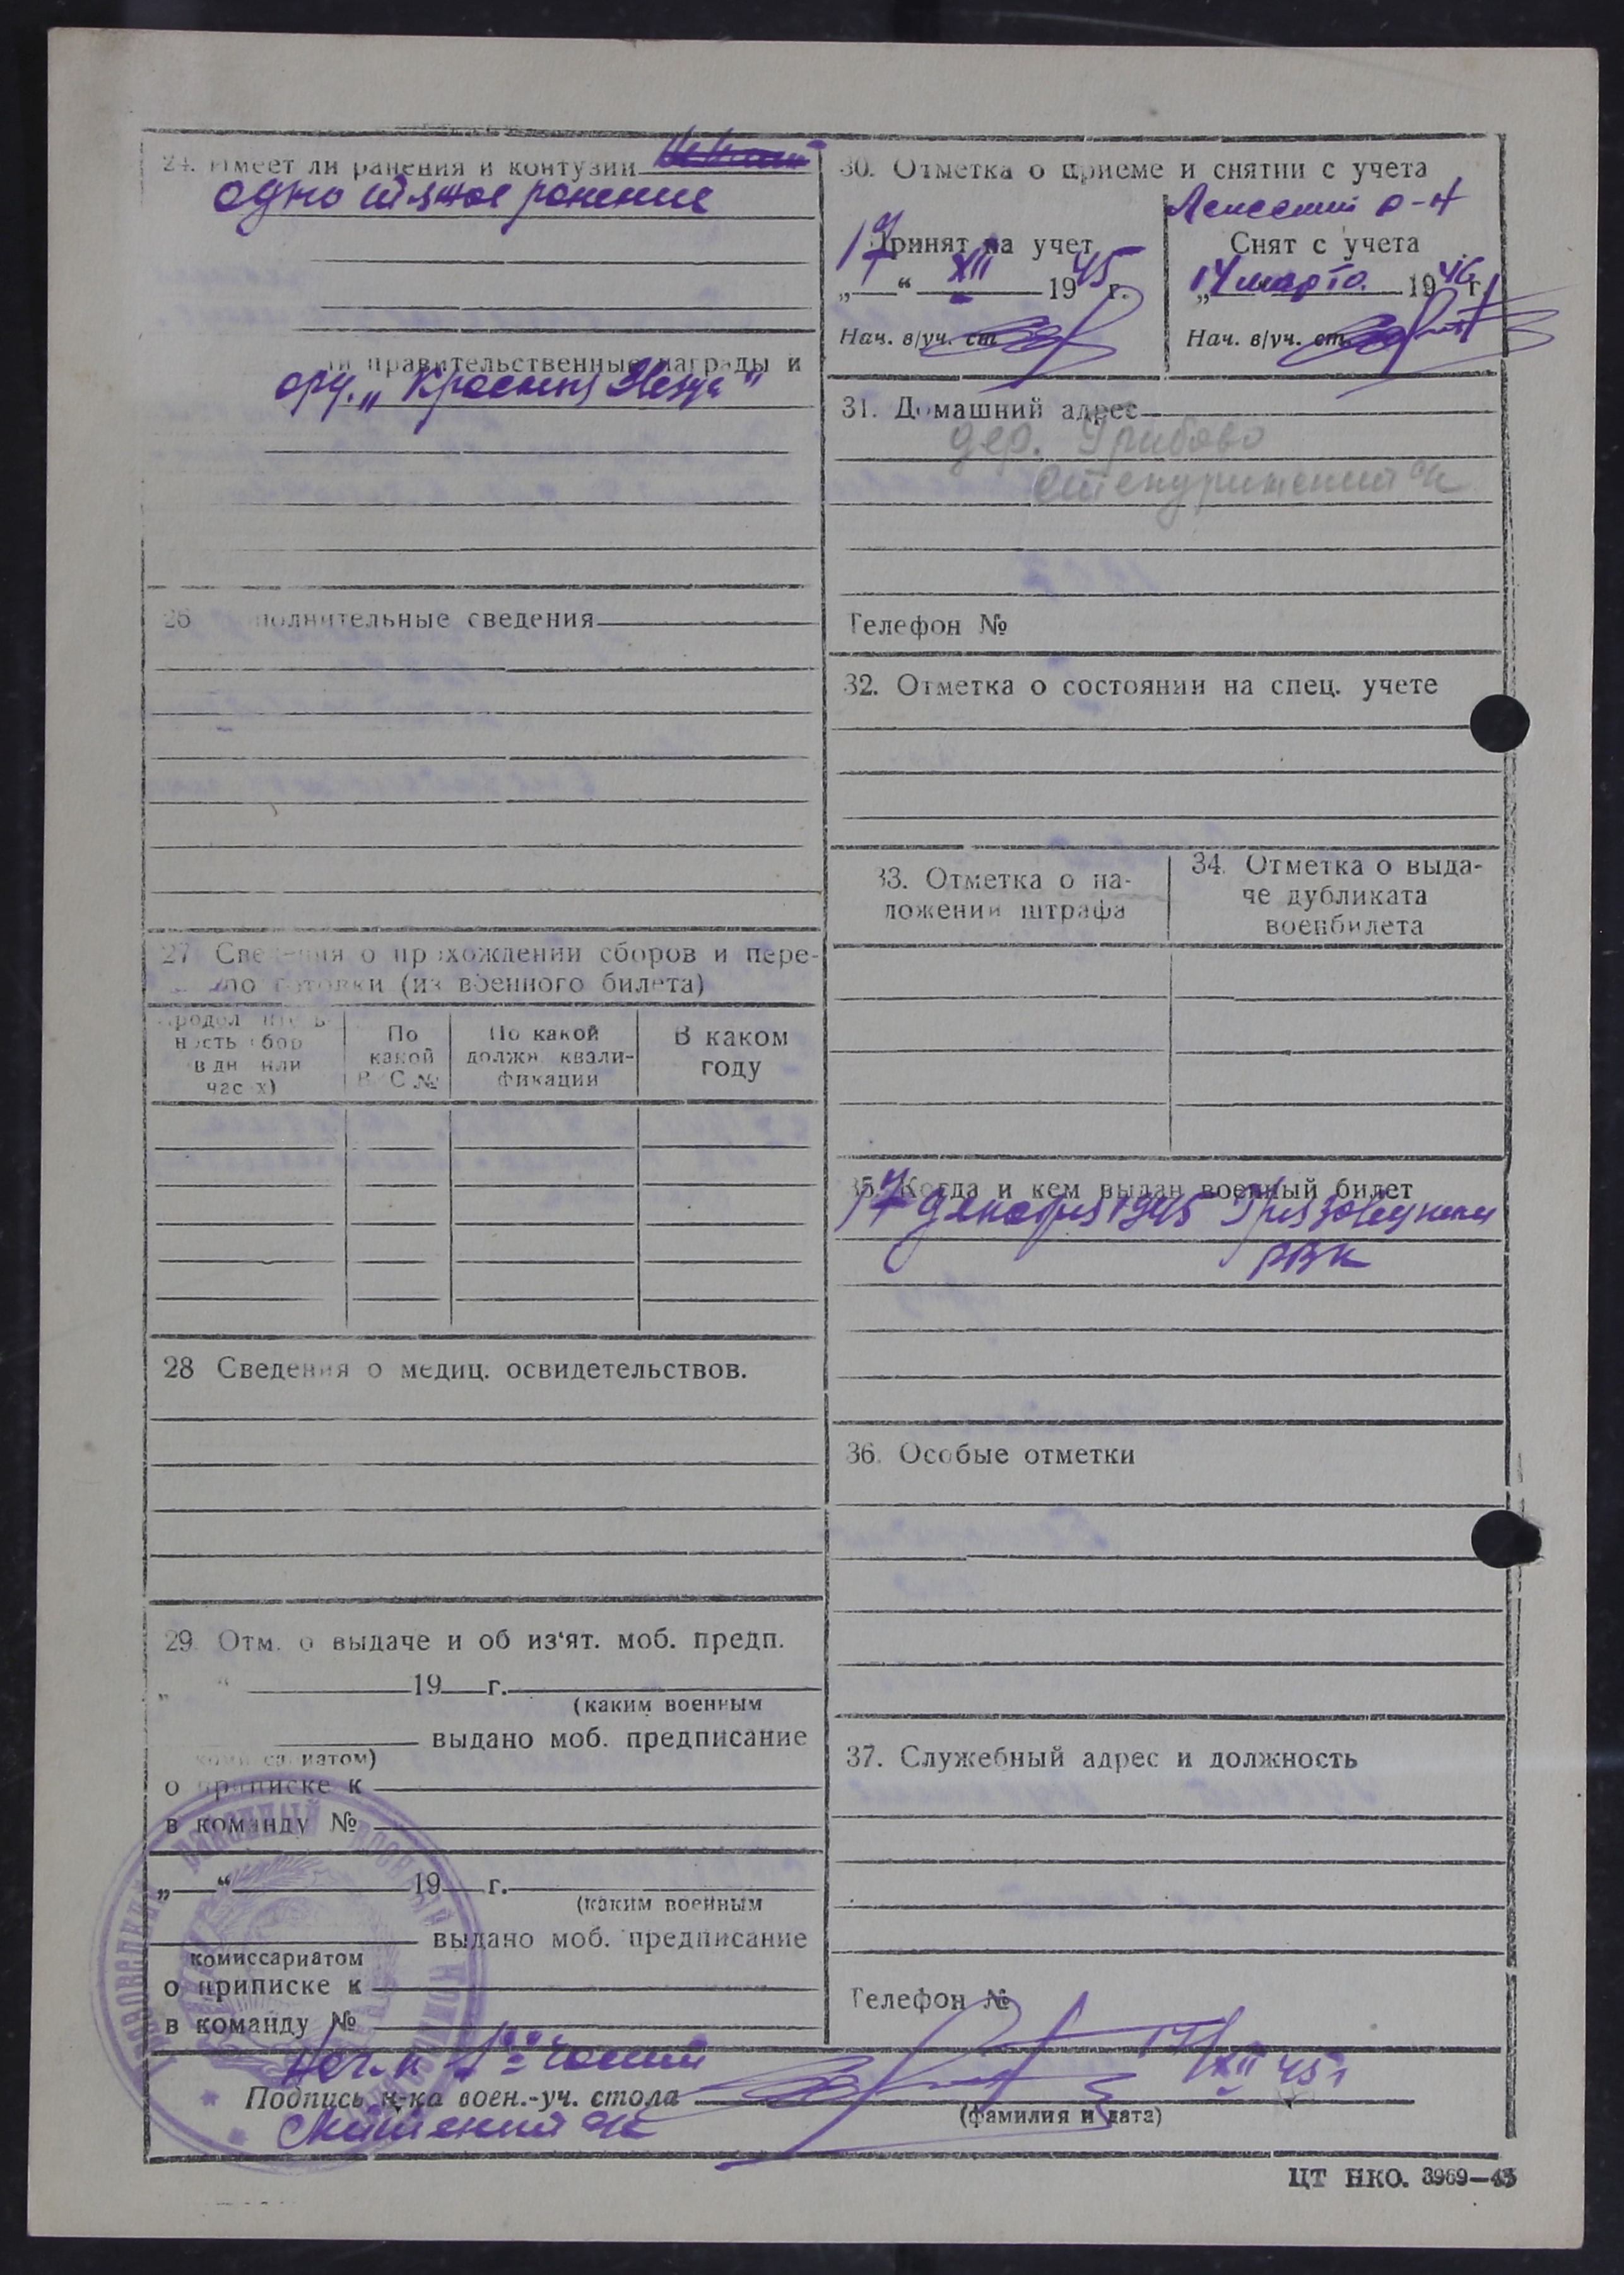 24. Имеет ли ранения и контузии
одно тяжелое ранение
правительственные награды и
орд. „Красная Звезда"
26 полнительные сведения
27 Сведения о прохождении сборов и пере-
по готовки (из военного билета)
Продолжитель-
ность сбор
в дн или
час х)
По
какой
В С №
По какой
должн. квали-
фикации
В каком
году
28 Сведения о медиц. освидетельствов.
29. Отм. о выдаче и об из‘ят. моб. предп.
„ “ 19 г.
(каким военным
выдано моб. предписание
комиссариатом)
о приписке к
в команду №
„ “ 19 г.
(каким военным
выдано моб. предписание
комиссариатом
о приписке к
в команду №
30. Отметка о приеме и снятии с учета
р-н
Принят на учет
17 “ XII 1945 г.
Нач. в/уч. ст.
Снят с учета
„14 марта 1946 г.
Нач. в/уч. ст.
31. Домашний адрес
дер. Грибово
Телефон №
32. Отметка о состоянии на спец. учете
33. Отметка о на-
ложении штрафа
34. Отметка о выда-
че дубликата
военбилета
35. Когда и кем выдан военный билет
17 декабря 1945 Грязовецким
РВК
36. Особые отметки
37. Служебный адрес и должность
Телефон №
Нач-к 1ой части
17/XII 45 г
Подпись н-ка воен.-уч. стола
(фамилия и дата)
ЦТ НКО. 3969—45